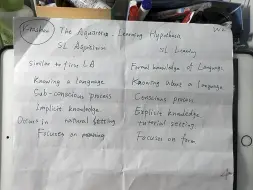 The Acquisition - Learning Hypothesis
SL Aquisition
SL Learning
Similar to first LA
Formal knowledge of Language
Knowing a language
Knowing about a language
Sub-conscious process
Conscious process
Implicit knowledge
Explicit knowledge
Occurs in natural setting
tutorial setting
Focuses on meaning
Focuses on form